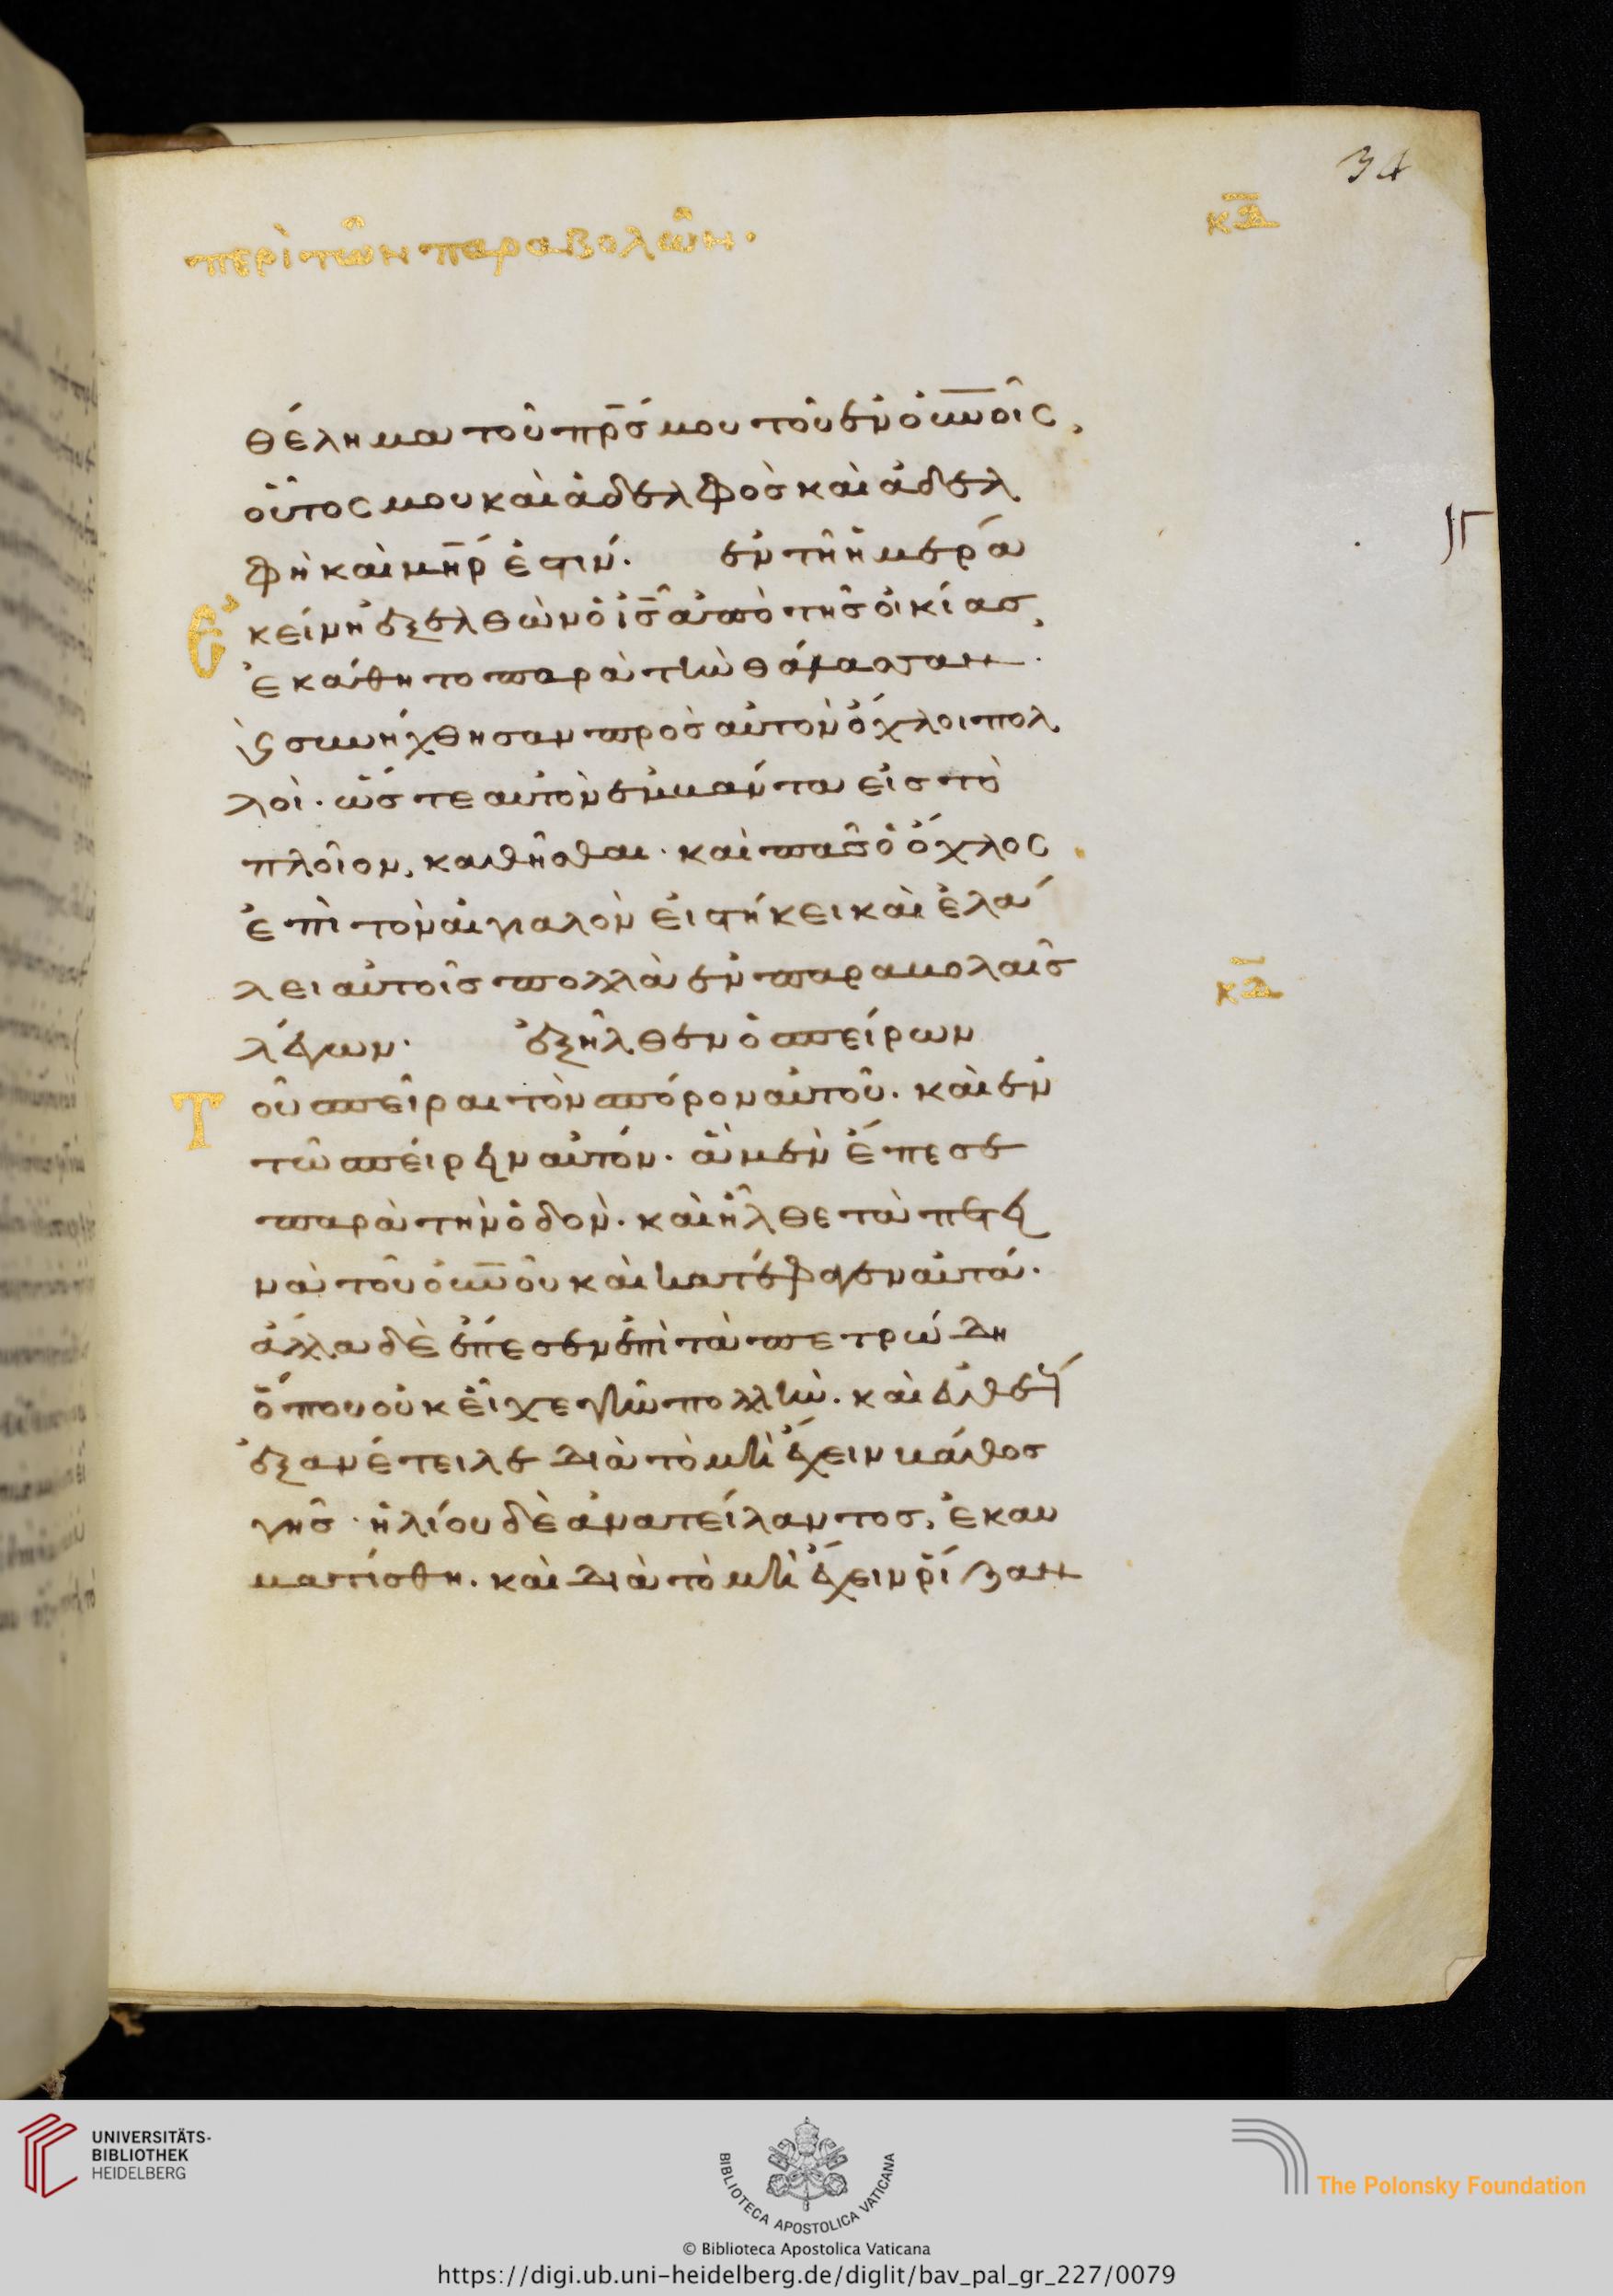 34
περὶ τῶν παραβολῶν·
κδ
θέλημα τοῦ πρς μου τοῦ ἐν οὐνοῖς,
οὗτος μου καὶ ἀδελφὸς καὶ ἀδελ
φὴ καὶ μηρ ἐστιν· ἐν τῆ ἡμέρα
ἐκείνη ἐξελθὼν ὁ ἰς ἀπὸ τῆς οἰκίας,
ἐκάθητο παρὰ τὴν θάλασσαν·
ϗ συνήχθησαν πρὸς αὐτὸν ὄχλοι πολ
λοὶ· ὥστε αὐτὸν ἐμβάντα εἰς τὸ
πλοῖον, καθῆσθαι· καὶ πᾶς ὁ ὄχλος
ἐπὶ τὸν αἰγιαλὸν εἱστήκει καὶ ἐλά
λει αὐτοῖς πολλὰ ἐν παραβολαῖς
κδ
λέγων· ἐξῆλθεν ὁ σπείρων
Τοῦ σπεῖραι τὸν σπόρον αὐτοῦ· καὶ ἐν
τῶ σπείρειν αὐτόν· ἃ μὲν ἔπεσε
παρὰ τὴν ὁδὸν· καὶ ἦλθε τὰ πετει
νὰ τοῦ οὐνοῦ καὶ κατέφαγεν αὐτά·
ἄλλα δὲ ἔπεσεν ἐπὶ τὰ πετρώδη
ὅπου οὐκ εἶχε γῆν πολλὴν· καὶ εὐθέως
ἐξανέτειλε διὰ τὸ μὴ ἔχειν βάθος
γῆς· ἡλίου δὲ ἀνατείλαντος, ἐκαυ
ματίσθη· καὶ διὰ τὸ μὴ ἔχειν ῥίζαν
UNIVERSITÄTS-
BIBLIOTHEK
HEIDELBERG
BIBLIOTECA APOSTOLICA VATICANA
The Polonsky Foundation
© Biblioteca Apostolica Vaticana
https://digi.ub.uni-heidelberg.de/diglit/bav_pal_gr_227/0079